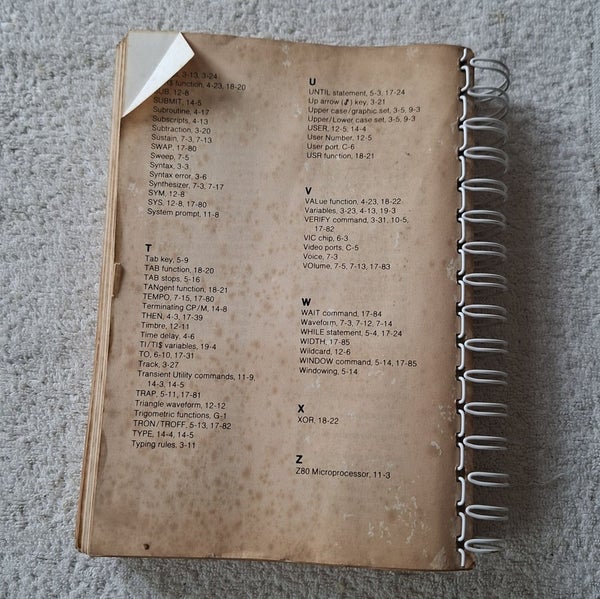 , 3-13, 3-24
function, 4-23, 18-20
SUB, 12-8
SUBMIT, 14-5
Subroutine, 4-17
Subscripts, 4-13
Subtraction, 3-20
Sustain, 7-3, 7-13
SWAP, 17-80
Sweep, 7-5
Syntax, 3-3
Syntax error, 3-6
Synthesizer, 7-3, 7-17
SYM, 12-8
SYS, 12-8, 17-80
System prompt, 11-8
T
Tab key, 5-9
TAB function, 18-20
TAB stops, 5-16
TANgent function, 18-21
TEMPO, 7-15, 17-80
Terminating CP/M, 14-8
THEN, 4-3, 17-39
Timbre, 12-11
Time delay, 4-6
TI/TI$ variables, 19-4
TO, 6-10, 17-31
Track, 3-27
Transient Utility commands, 11-9,
14-3, 14-5
TRAP, 5-11, 17-81
Triangle waveform, 12-12
Trigometric functions, G-1
TRON/TROFF, 5-13, 17-82
TYPE, 14-4, 14-5
Typing rules, 3-11
U
UNTIL statement, 5-3, 17-24
Up arrow (↑) key, 3-21
Upper case/graphic set, 3-5, 9-3
Upper/Lower case set, 3-5, 9-3
USER, 12-5, 14-4
User Number, 12-5
User port, C-6
USR function, 18-21
V
VALue function, 4-23, 18-22
Variables, 3-23, 4-13, 19-3
VERIFY command, 3-31, 10-5,
17-82
VIC chip, 6-3
Video ports, C-5
Voice, 7-3
VOlume, 7-5, 7-13, 17-83
W
WAIT command, 17-84
Waveform, 7-3, 7-12, 7-14
WHILE statement, 5-4, 17-24
WIDTH, 17-85
Wildcard, 12-6
WINDOW command, 5-14, 17-85
Windowing, 5-14
X
XOR, 18-22
Z
Z80 Microprocessor, 11-3